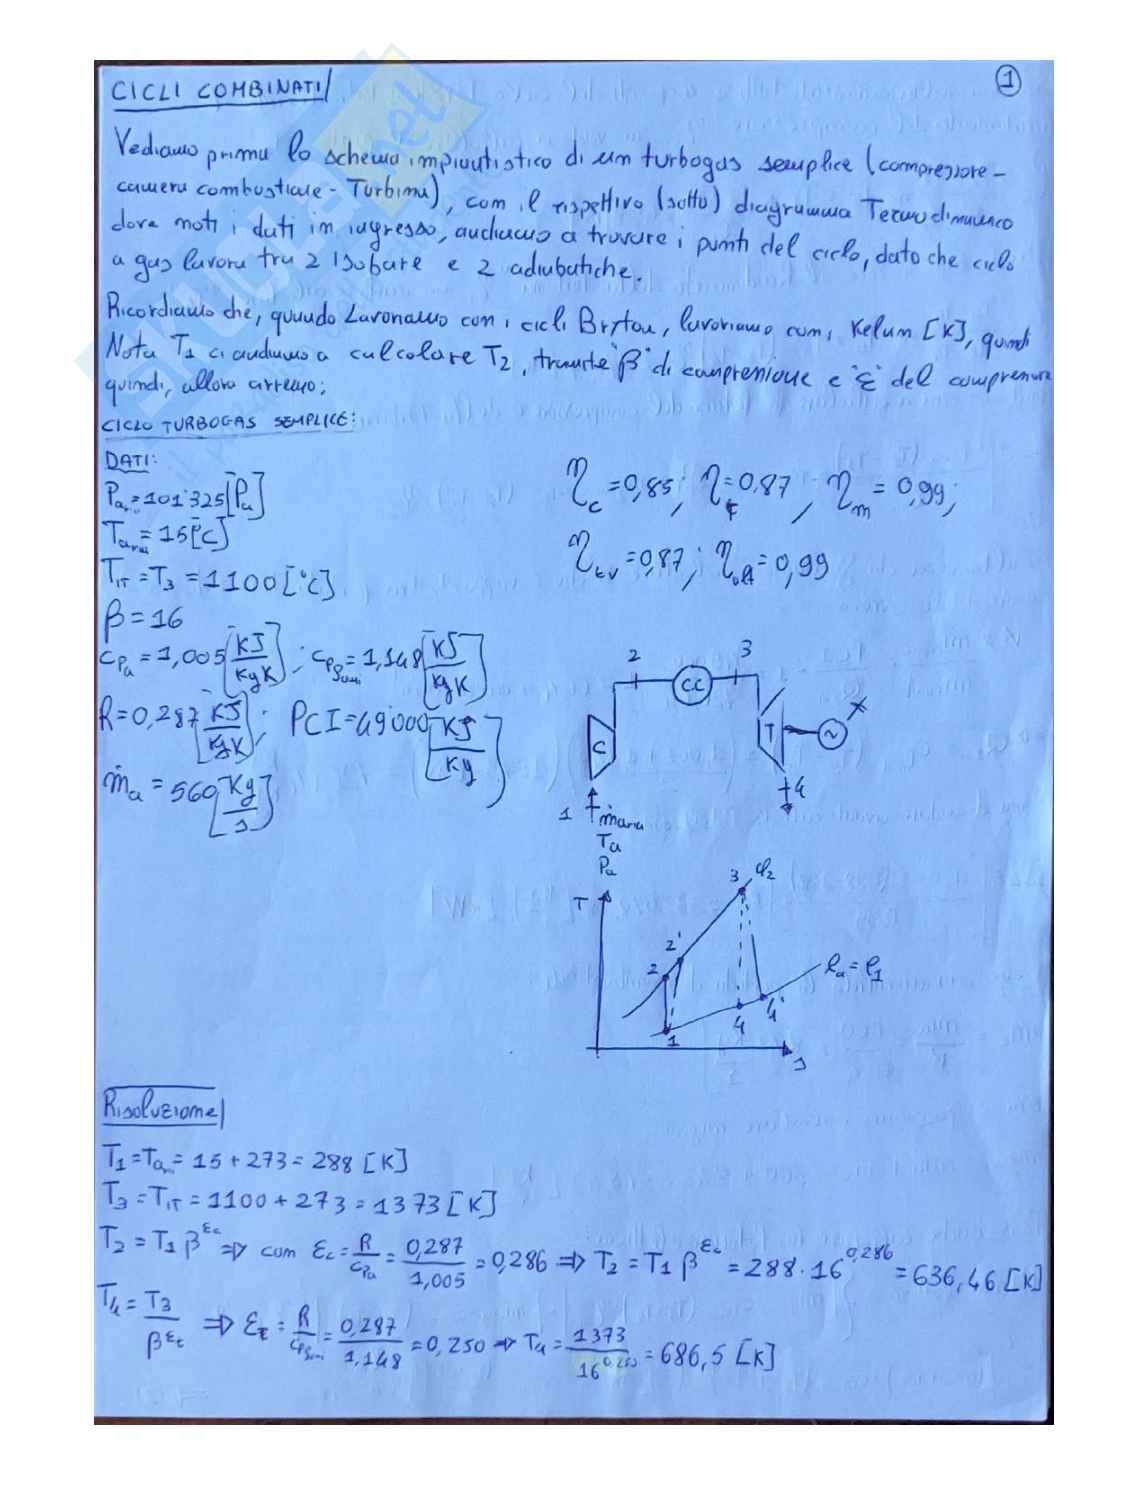 CICLI COMBINATI
1
Vediamo prima lo schema impiantistico di un turbogas semplice (compressore-
camera combustione - Turbina), con il rispettivo (sotto) diagramma Termodinamico
dove noti i dati in ingresso, andiamo a trovare i punti del ciclo, dato che ciclo
a gas lavora tra 2 Isobare e 2 adiabatiche.
Ricordiamo che, quando Lavoriamo con i cicli Bryton, lavoriamo con i Kelvin [K], quindi
Nota T1 ci andiamo a calcolare T2, tramite "β" di compressione e "ε" del compressore
quindi, allora avremo:
CICLO TURBOGAS SEMPLICE:
DATI:
Pa = 101'325 [Pa]
Taria = 15 [°C]
TIT = T3 = 1100 [°C]
β = 16
cPa = 1,005 [KJ/KgK]; cPfumi = 1,148 [KJ/KgK]
R = 0,287 [KJ/KgK]; PCI = 49'000 [KJ/Kg]
ṁa = 560 [Kg/s]
ηc = 0,85; ηt = 0,87; ηm = 0,99;
ηtv = 0,87; ηalt = 0,99
2 3
C.C
C T ~
4
1 ṁaria
Ta
Pa
T 3 P2
2'
2 Pa = P1
1 4 4'
s
Risoluzione
T1 = Ta = 15 + 273 = 288 [K]
T3 = TIT = 1100 + 273 = 1373 [K]
T2 = T1 β^εc => com εc = R/cPa = 0,287/1,005 = 0,286 => T2 = T1 β^εc = 288 · 16^0,286 = 636,46 [K]
T4 = T3/β^εt => εt = R/cPfumi = 0,287/1,148 = 0,250 => T4 = 1373/16^0,250 = 686,5 [K]